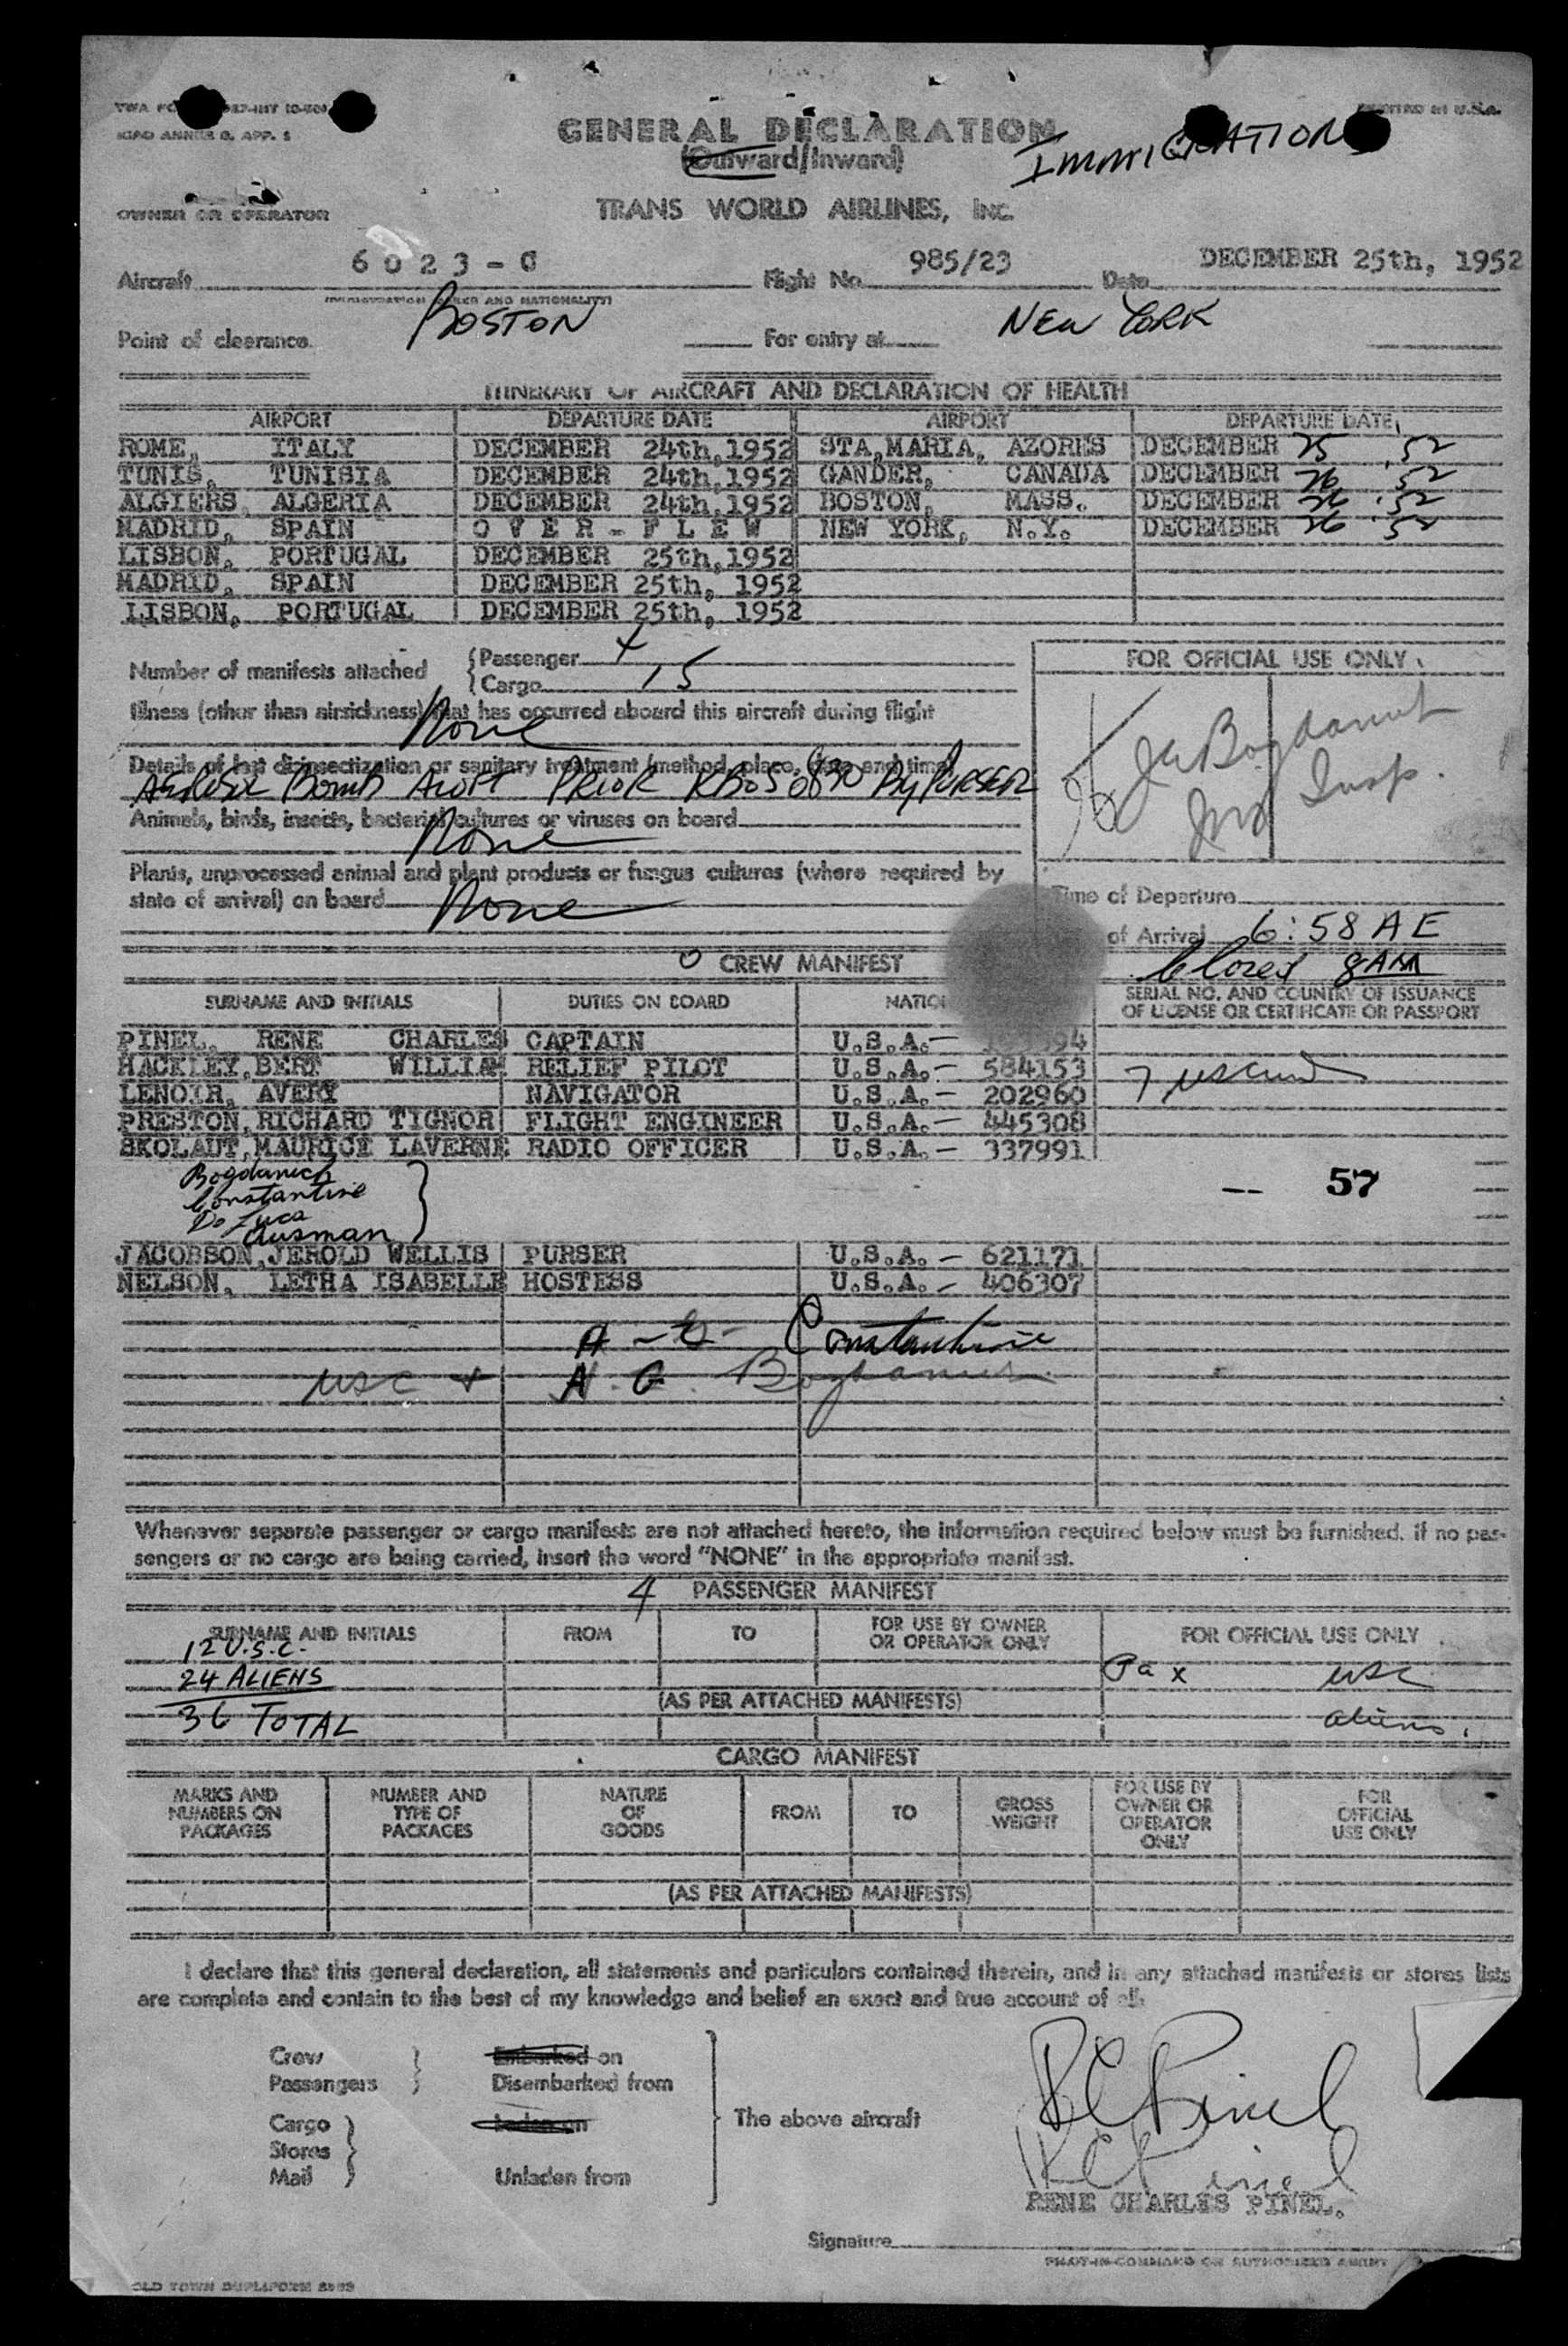 ICAO ANNEX 9, APP. 1
PRINTED IN U.S.A.
GENERAL DECLARATION
(Outward/Inward)
IMMIGRATION
OWNER OR OPERATOR
TRANS WORLD AIRLINES, INC.
Aircraft 6023-C Flight No. 985/23 Date DECEMBER 25th, 1952
Point of clearance BOSTON For entry at NEW YORK
ITINERARY OF AIRCRAFT AND DECLARATION OF HEALTH
AIRPORT DEPARTURE DATE AIRPORT DEPARTURE DATE
ROME, ITALY DECEMBER 24th,1952 STA,MARIA, AZORES DECEMBER 25 ,52
TUNIS, TUNISIA DECEMBER 24th,1952 GANDER, CANADA DECEMBER 26 52
ALGIERS, ALGERIA DECEMBER 24th,1952 BOSTON, MASS. DECEMBER 26 '52
MADRID, SPAIN O V E R - F L E W NEW YORK, N.Y. DECEMBER 26 '52
LISBON, PORTUGAL DECEMBER 25th,1952
MADRID, SPAIN DECEMBER 25th, 1952
LISBON, PORTUGAL DECEMBER 25th, 1952
Number of manifests attached Passenger
Cargo 15
FOR OFFICIAL USE ONLY
Illness (other than airsickness) that has occurred aboard this aircraft during flight
None
Details of last disinsectization or sanitary treatment (method, place, date and time)
Aerosol Bomb Aloft Prior KBOS 0830 By Purser
Animals, birds, insects, bacterial cultures or viruses on board
None
Plants, unprocessed animal and plant products or fungus cultures (where required by
state of arrival) on board None
Insp.
Time of Departure
of Arrival 6:58 A E
Closed 8AM
0 CREW MANIFEST
SURNAME AND INITIALS DUTIES ON BOARD SERIAL NO. AND COUNTRY OF ISSUANCE
OF LICENSE OR CERTIFICATE OR PASSPORT
PINEL, RENE CHARLES CAPTAIN U.S.A.-
HACKLEY,BERT WILLIAM RELIEF PILOT U.S.A.- 584153
LENOIR, AVERY NAVIGATOR U.S.A.- 202960
PRESTON,RICHARD TIGNOR FLIGHT ENGINEER U.S.A.- 445308
SKOLAUT,MAURICE LAVERNE RADIO OFFICER U.S.A.- 337991
Bogdanich
Constantine
De Luca
Ausman
-- 57
JACOBSON,JEROLD WELLIS PURSER U.S.A. - 621171
NELSON, LETHA ISABELLE HOSTESS U.S.A. - 406307
Constantine
usc +
Whenever separate passenger or cargo manifests are not attached hereto, the information required below must be furnished. If no pas-
sengers or no cargo are being carried, insert the word "NONE" in the appropriate manifest.
4 PASSENGER MANIFEST
SURNAME AND INITIALS FROM TO FOR USE BY OWNER
OR OPERATOR ONLY FOR OFFICIAL USE ONLY
12 U.S.C.
24 ALIENS
36 TOTAL
(AS PER ATTACHED MANIFESTS)
Pax usc
aliens.
CARGO MANIFEST
MARKS AND
NUMBERS ON
PACKAGES
NUMBER AND
TYPE OF
PACKAGES
NATURE
OF
GOODS
FROM
TO
GROSS
WEIGHT
FOR USE BY
OWNER OR
OPERATOR
ONLY
FOR
OFFICIAL
USE ONLY
(AS PER ATTACHED MANIFESTS)
I declare that this general declaration, all statements and particulars contained therein, and in any attached manifests or stores lists
are complete and contain to the best of my knowledge and belief an exact and true account of all
Crew Embarked on
Passengers Disembarked from
Cargo Laden on The above aircraft
Stores
Mail Unladen from
R C Pinel
R C Pinel
RENE CHARLES PINEL.
Signature
PILOT-IN-COMMAND OR AUTHORIZED AGENT